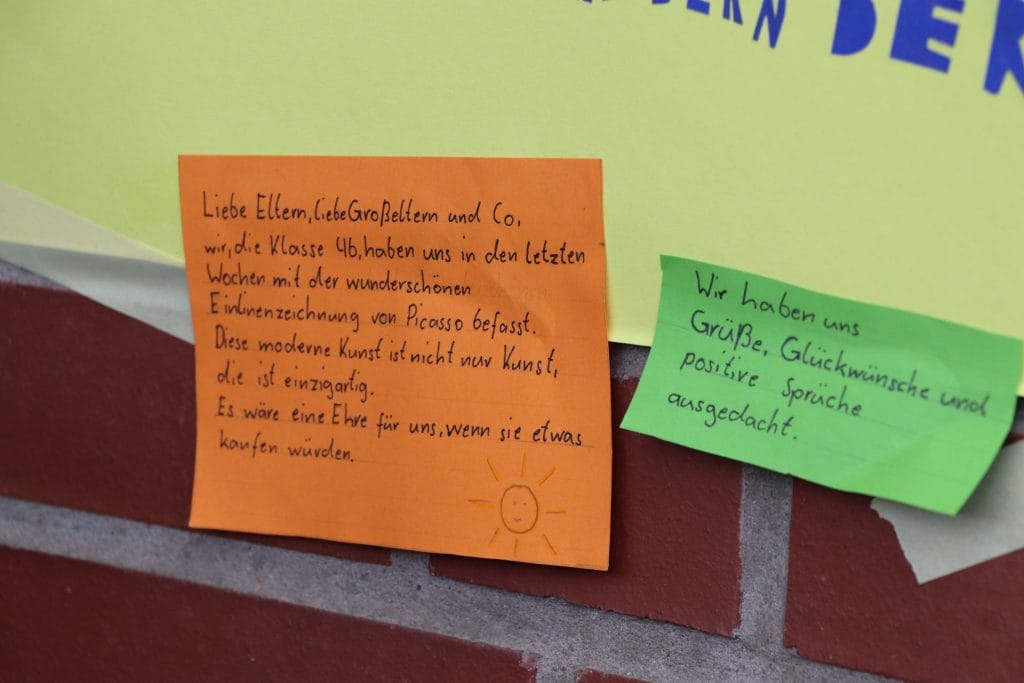 DERN DER
Liebe Eltern, liebe Großeltern und Co,
wir, die Klasse 4b, haben uns in den letzten
Wochen mit der wunderschönen
Einlinenzeichnung von Picasso befasst.
Diese moderne Kunst ist nicht nur Kunst,
die ist einzigartig.
Es wäre eine Ehre für uns, wenn sie etwas
kaufen würden.
Wir haben uns
Grüße, Glückwünsche und
positive Sprüche
ausgedacht.